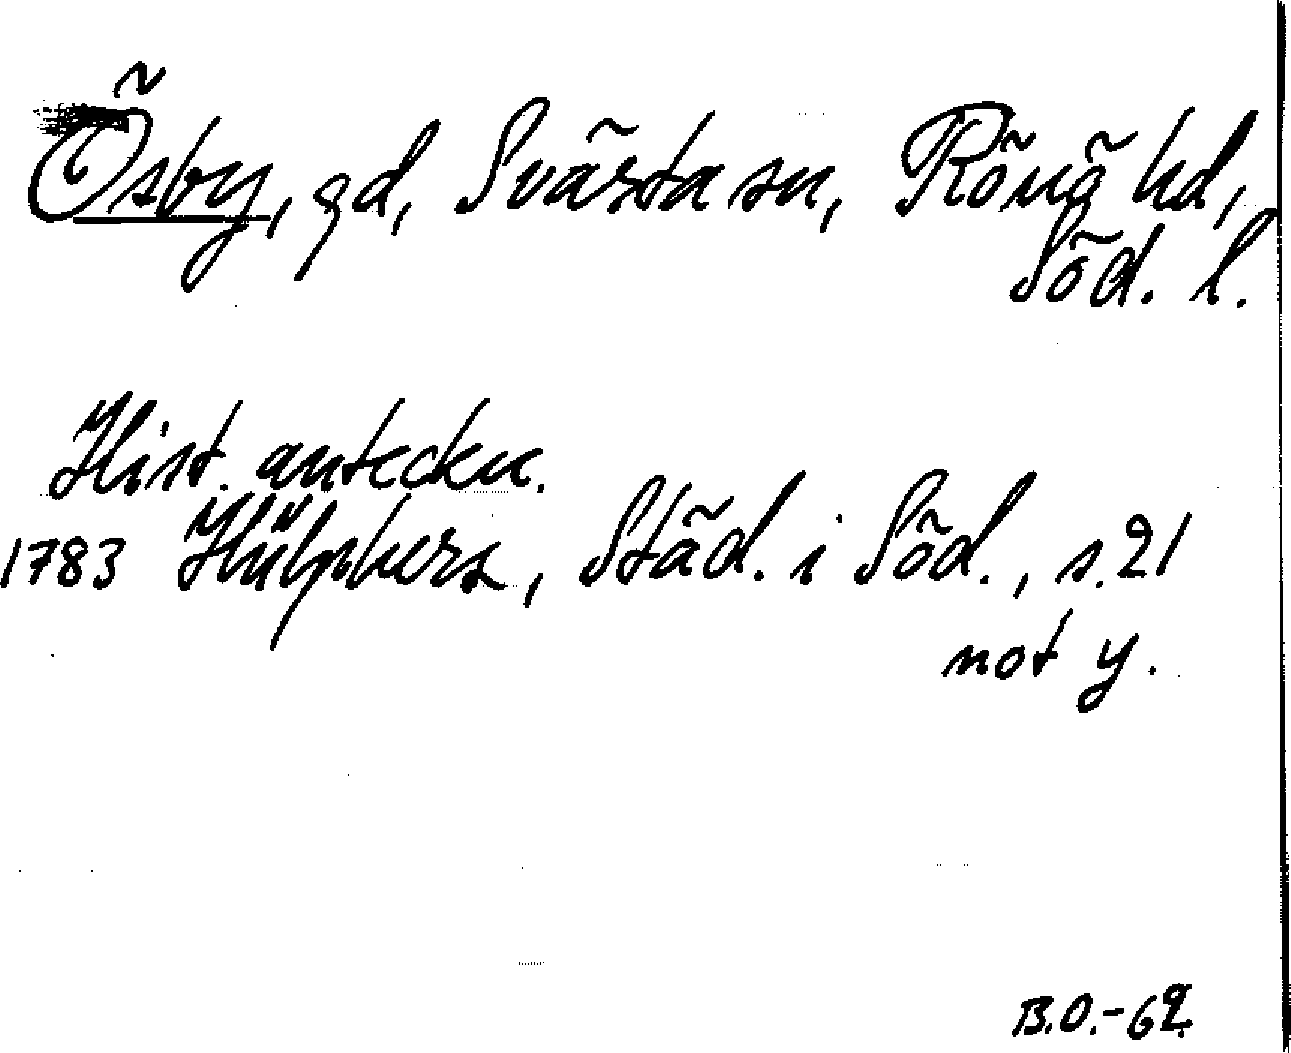 Ösby, gd, Svärta sn, Rönö hd,
Söd. l.
Hist. anteckn.
1783 Hülphers, Städ. i Söd., s. 21
not y.
B.O.-62